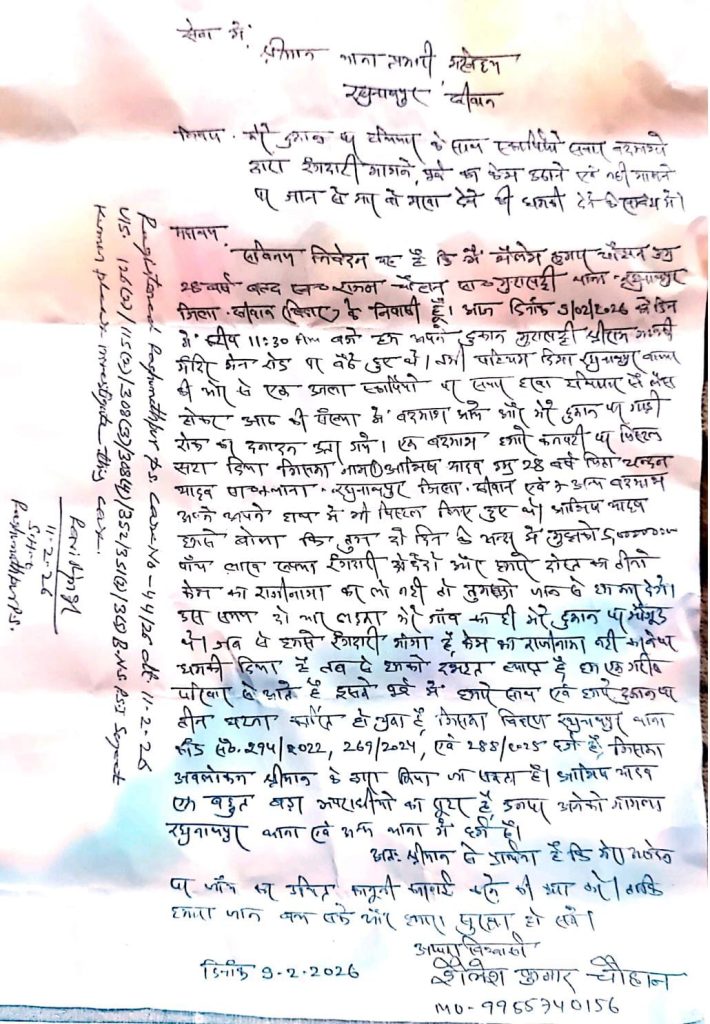 सेवा में,
श्रीमान थाना प्रभारी महोदय
रघुनाथपुर सीवान
विषय - मेरे दुकान पर हथियार के साथ स्कार्पियो सवार बदमाशो
द्वारा रंगदारी मांगने, पूर्व का केस उठाने एवं नही मानने
पर जान से मार देने की धमकी देने के संबंध में।
महाशय,
सविनय निवेदन यह है कि मैं शैलेश कुमार चौहान उम्र
28 वर्ष वल्द स्व० राजन चौहान सा० मुरारपट्टी थाना रघुनाथपुर
जिला- सीवान (बिहार) के निवासी हूँ। आज दिनांक 5/02/2026 को दिन
में करीब 11:30 AM बजे हम अपने दुकान मुरारपट्टी श्रीराम जानकी
मंदिर मेन रोड पर बैठे हुए थे। तभी पश्चिम दिशा रघुनाथपुर बाजार
की ओर से एक काला स्कार्पियो पर सवार हरवा हथियार से लैस
होकर आठ की संख्या में बदमाश आये और मेरे दुकान पर गाड़ी
रोक कर दनादन उतर गये। एक बदमाश हमारे कनपटी पर पिस्टल
सटा दिया जिसका नाम ① आशिष यादव उम्र 28 वर्ष पिता चन्दन
यादव सा० थाना- रघुनाथपुर जिला- सीवान एवं अन्य बदमाश
अपने अपने हाथ में भी पिस्टल लिए हुए थे। आशिष यादव
हमसे बोला कि तुम दो दिन के अन्दर में मुझको
पाँच लाख रुपया रंगदारी दो और हमारे दोस्त का तीनो
केस का राजीनामा कर लो नही तो तुमको जान से मार देंगे।
उस समय दो चार लड़का मेरे गाँव का ही मेरे दुकान पर मौजूद
थे। जब से हमसे रंगदारी मांगा है, केस का राजीनामा नही करने पर
धमकी दिया है तब से हमको दहशत व्याप्त है, हम एक गरीब
परिवार से आते है इससे पूर्व में हमारे साथ एवं हमारे दुकान पर
तीन घटना कारित हो चुका है, जिसका विवरण रघुनाथपुर थाना
कांड सं०- 294/2022, 269/2024, एवं 288/2025 दर्ज है, जिसका
अवलोकन श्रीमान के द्वारा किया जा सकता है। आशिष यादव
एक बहुत बड़ा अपराधीयो का है, इनपर अनेको मामला
रघुनाथपुर थाना एवं अन्य थाना में दर्ज है।
अतः श्रीमान से प्रार्थना है कि मेरे आवेदन
पर जाँच कर उचित कानूनी कार्रवाई करने की कृपा करें। ताकि
हमारा जान बच सके और हमारा सुरक्षा हो सके।
आपका विश्वासी
शैलेश कुमार चौहान
दिनांक 9-2-2026
MO- 9955740156
Registered Raghunathpur P.S. Case No - 44/26 dt. 11-2-26
U/S: 126(2)/115(2)/308(3)/308(4)/352/351(3)/3(5) B.N.S PSI Sujeet
Kumar please investigate this case.
11-2-26
S.H.O
Raghunathpur P.S.